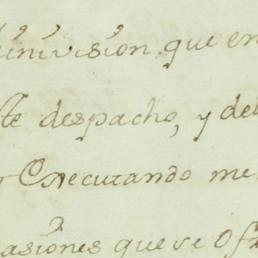 que en
te despacho, y de
Executando me
casiones que se ofr